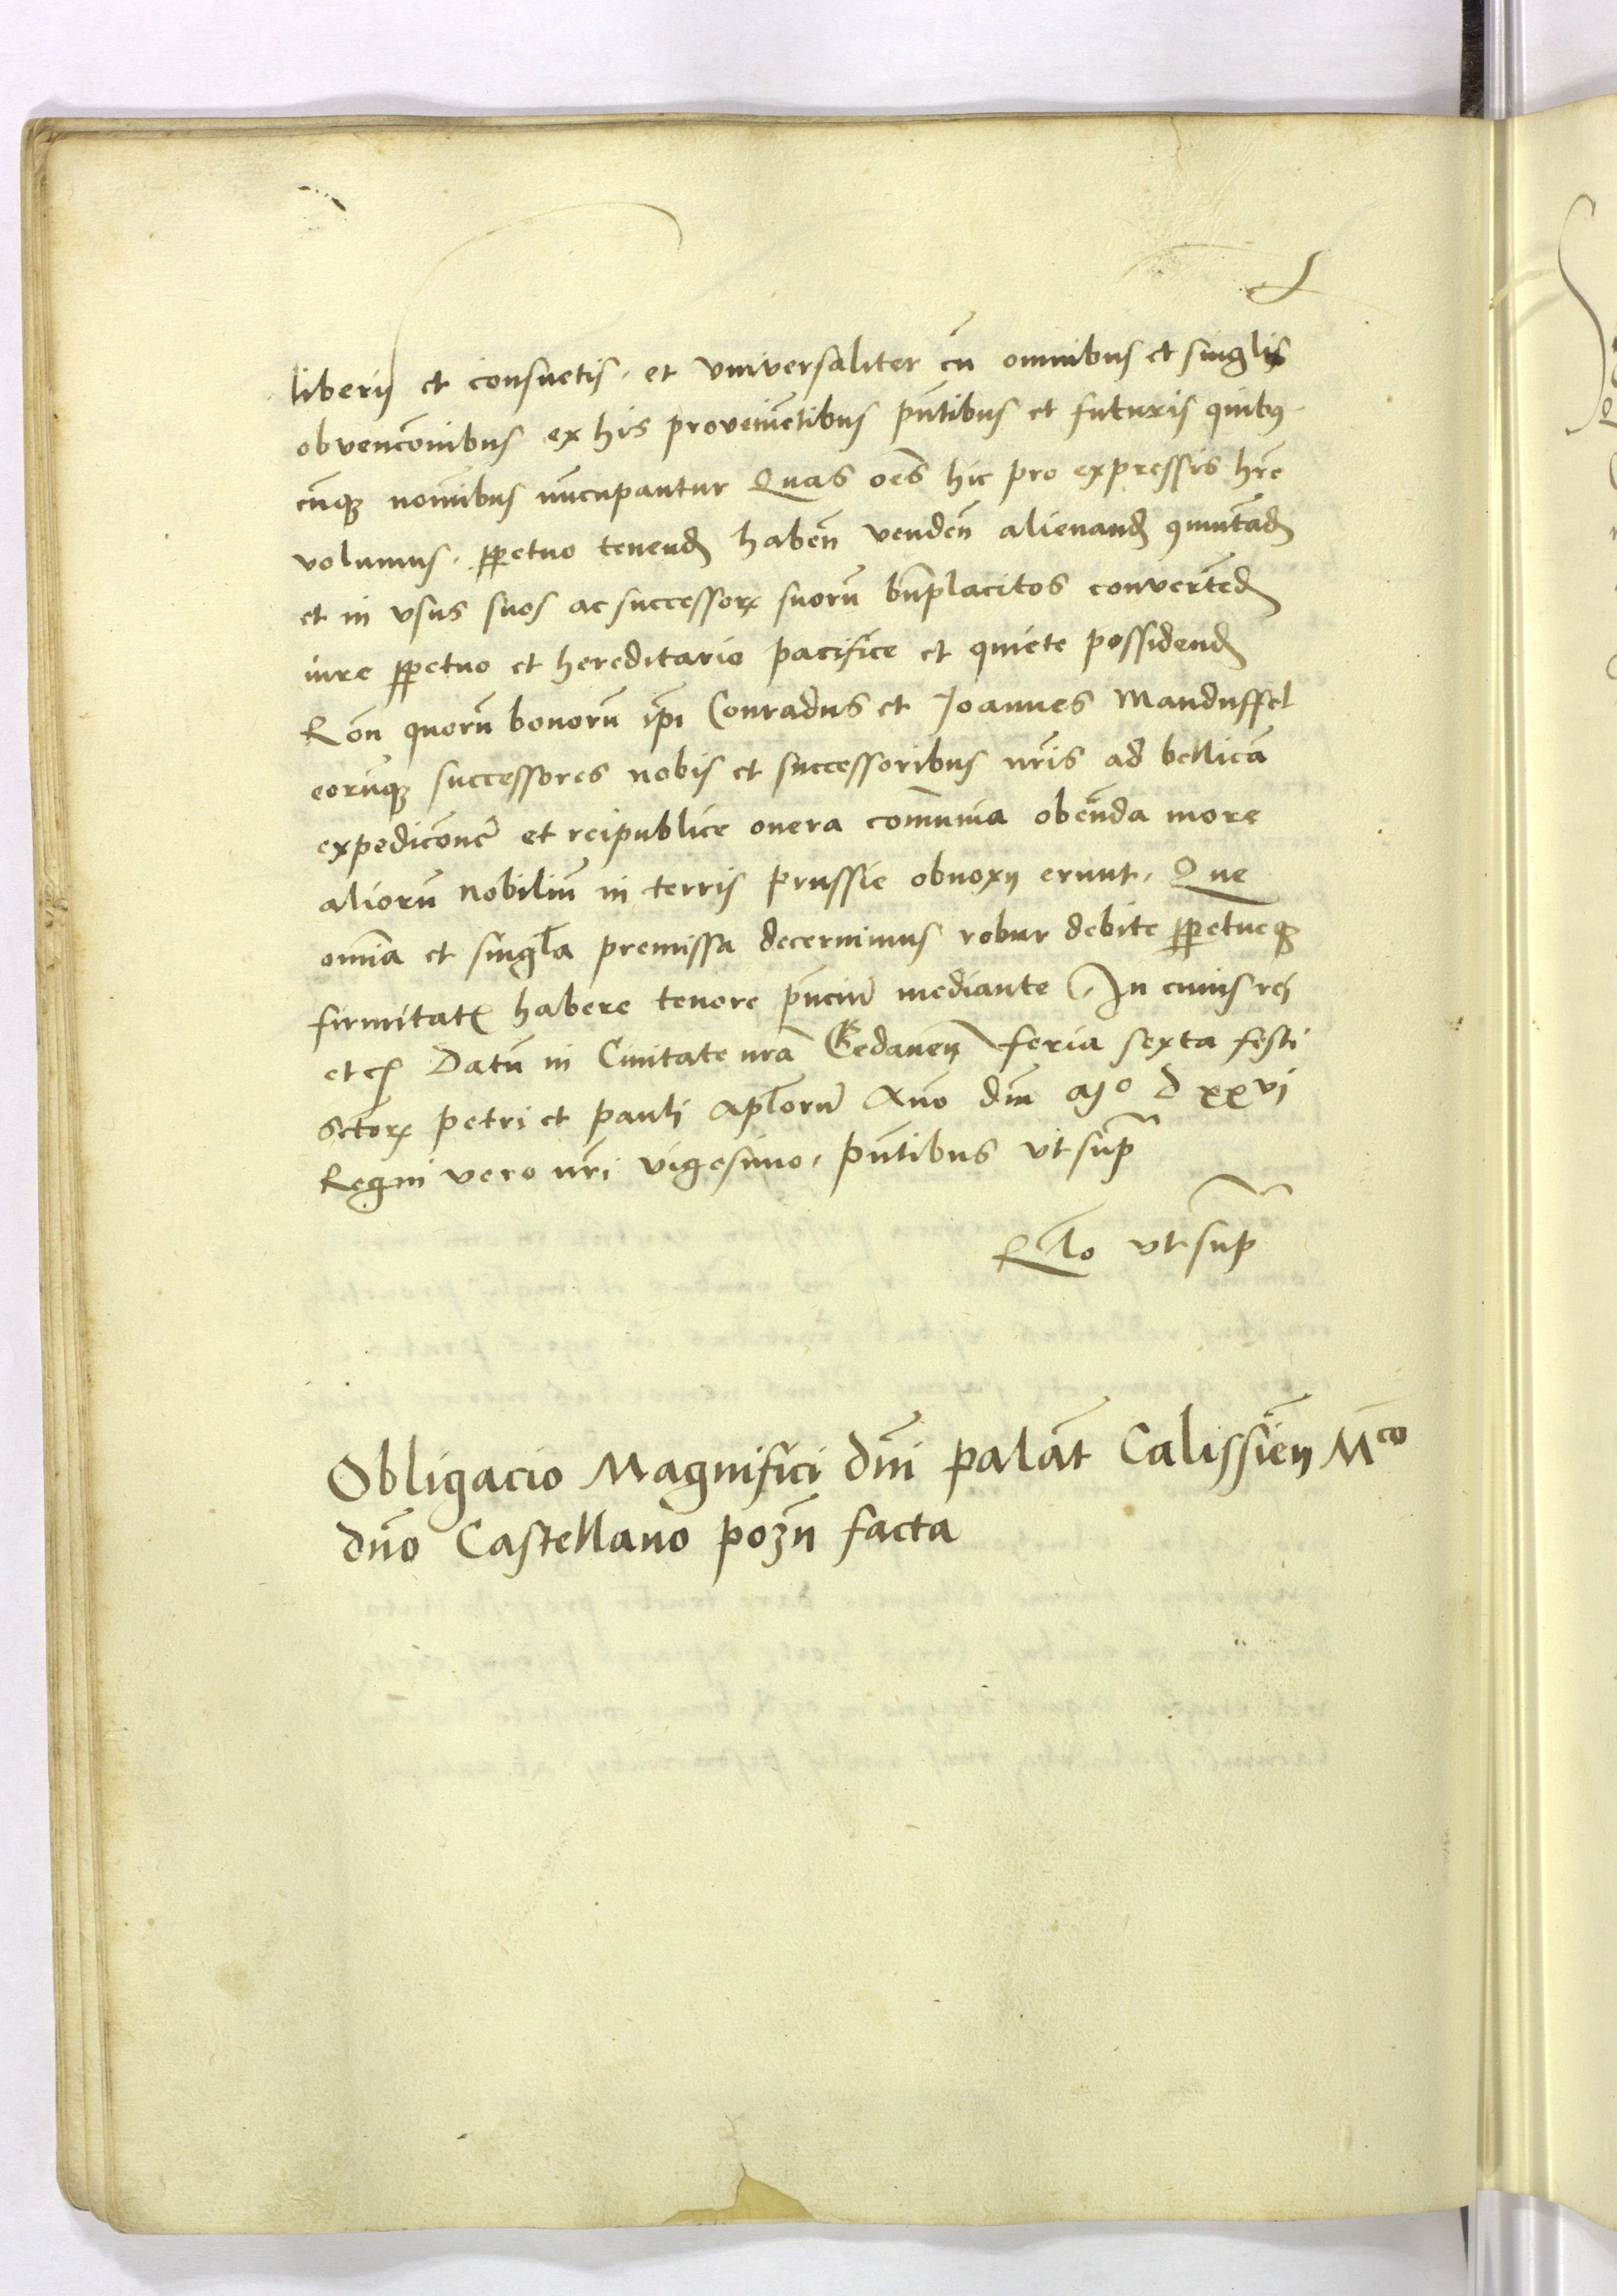 liberis et consuetis. et vniversaliter cu̅ omnibus et singlis
obvenc̅onibus ex his provenie̅tibus pn̅tibus et futuris quibꝯ
cu̅qꝫ nom̅ibus nu̅cupantur Quas oe̅s hic pro expressis hr̅e
volumus. ꝑpetuo tenend̅ haben̅ venden̅ alienand̅ ꝯmuta̅d̅
et in vsus suos ac successorꝝ suoru̅ bn̅placitos converte̅d̅
iure ꝑpetuo et hereditario pacifice et quiete possidend̅
Ro̅n quoru̅ bonoru̅ ip̅i Conradus et Joannes Manduffel
eoru̅qꝫ successores nobis et successoribus nr̅is ad bellica̅
expedic̅one̅ et reipublice onera com̅unia obeu̅da more
alioru̅ nobiliu̅ in terris prussie obnoxij erunt. Que
om̅ia et singl̅a premissa decernimus robur debite ꝑpetueqꝫ
firmitatꝭ habere tenore pn̅ciu̅ mediante In cuius rei
etcꝭ Datu̅ in Civitate nr̅a Gedanen̅ feria sexta festi
Sctorꝝ petri et pauli Apl̅oru̅ An̅o dn̅i Mo d xxvi
Regni vero nr̅i vigesimo. pn̅tibus vt sup̅
Rl̅o vt sup̅
Obligacio Magnifici dn̅i pala̅t Calissien̅ Mco
dn̅o Castellano pozn̅ facta